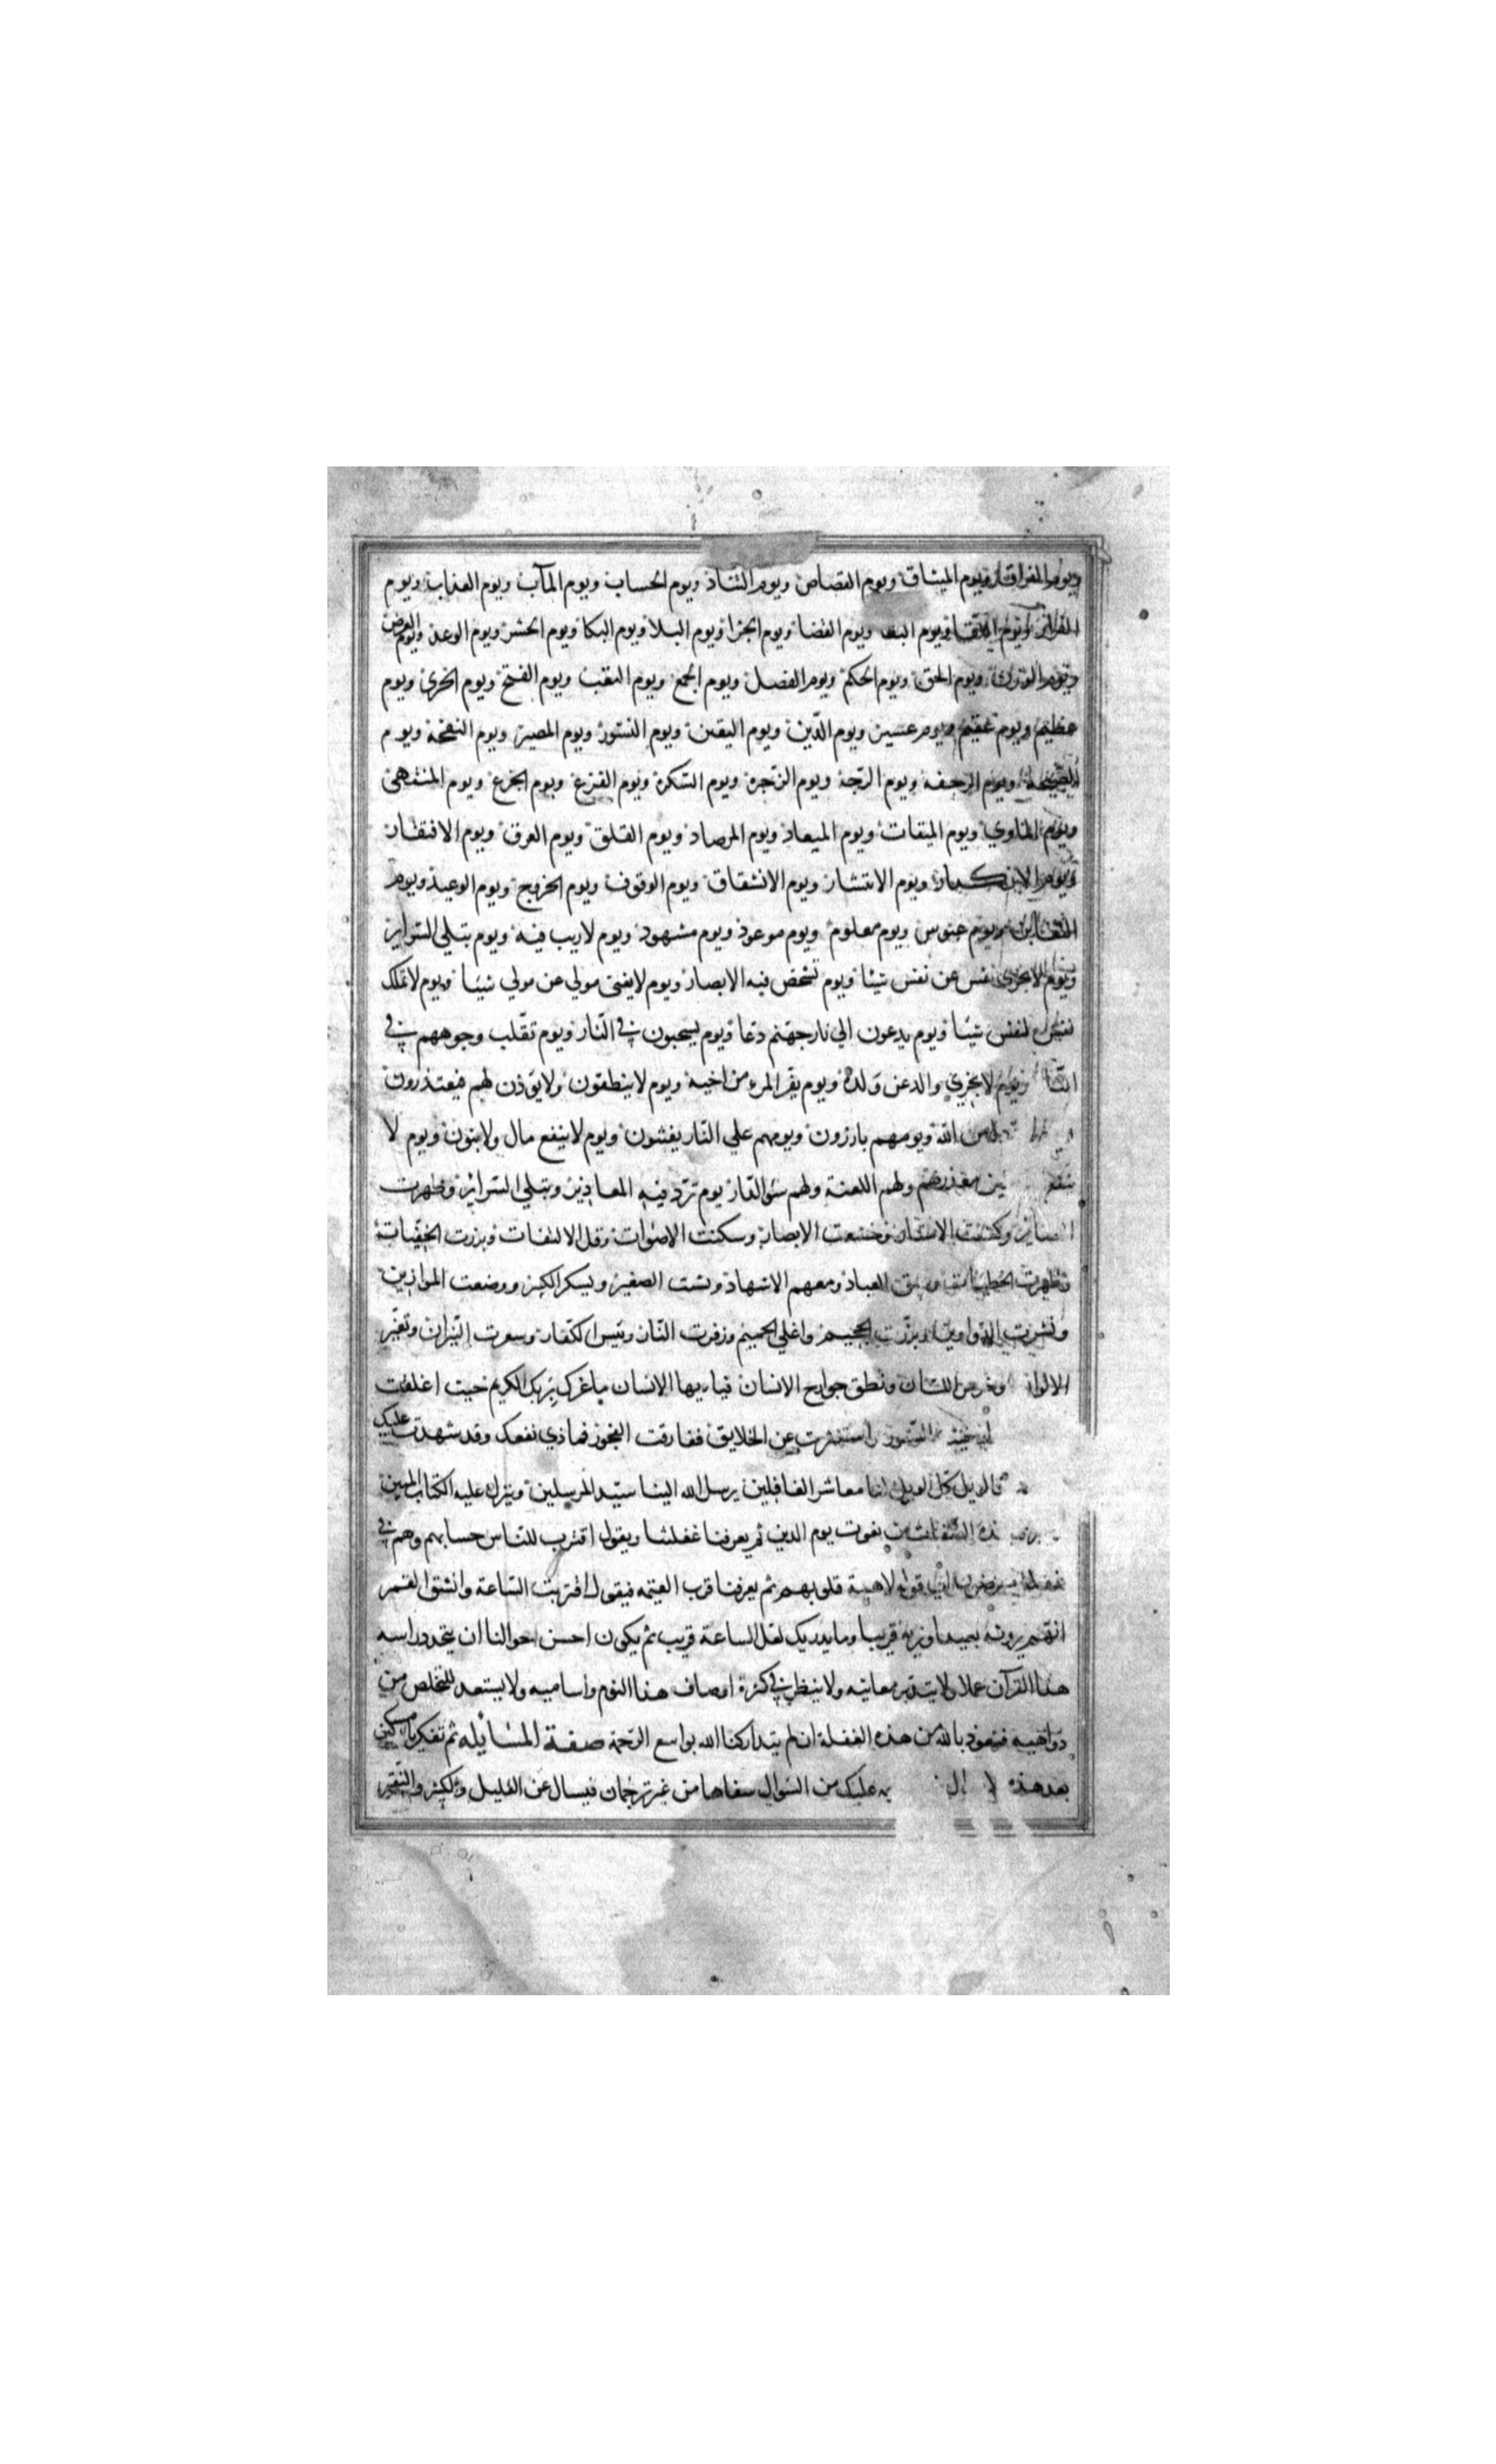 ويوم الفراق ويوم الميثاق ويوم القصاص ويوم التناد ويوم الحساب ويوم المآب ويوم العذاب ويوم
الفرار ويوم اللقا ويوم البقا ويوم القضا ويوم الجزا ويوم البلا ويوم البكا ويوم الحشر ويوم الوعد ويوم العرض
ويوم الوزن ويوم الحق ويوم الحكم ويوم الفصل ويوم الجمع ويوم البعث ويوم الفتح ويوم الخزى ويوم
عظيم ويوم عقيم ويوم عسير ويوم الدّين ويوم اليقين ويوم النشور ويوم المصير ويوم النفخة ويوم
الصيحة ويوم الرجفه ويوم الرّجة ويوم الزّجرة ويوم السّكرة ويوم الفزع ويوم الجزع ويوم المنتهى
ويوم الماوي ويوم الميقات ويوم الميعاد ويوم المرصاد ويوم القلق ويوم العرق ويوم الافتقار
ويوم الانكدار ويوم الانتشار ويوم الانشقاق ويوم الوقوف ويوم الخروج ويوم الوعيد ويوم
التغابن ويوم عبوس ويوم معلوم ويوم موعود ويوم مشهود ويوم لاريب فيه ويوم تبلي السّراير
ويوم لا تجزى نفس عن نفس شيئا ويوم تشخص فيه الابصار ويوم لايغنى مولي عن مولي شيئا ويوم لا تملك
نفس لنفس شيئا ويوم يدعون الي نار جهنم دعا ويوم يسحبون في النّار ويوم تقّلب وجوههم في
النّار ويوم لا يجزي والد عن ولده ويوم يفر المرء من اخيه ويوم لا ينطقون ولا يؤذن لهم فيعتذرون
من الله ويوم هم بارزون ويوم هم علي النّار يفتنون ويوم لا ينفع مال ولا بنون ويوم لا
ينفع معذرتهم ولهم اللعنة ولهم سؤ الدّار يوم تردّ فيه المعاذير وتبلي السّراير وظهرت
وكشفت الاستار وخشعت الابصار وسكنت الاصوات وقل الالتفات وبرزت الخفيّات
وظهرت الخطيات وسيق العباد ومعهم الاشهاد وشت الصغير ويسكر الكبير ووضعت الموازين
ونشرت الدّواوين وبرّزت الجحيم واغلي الحميم وزفرت النّار ويئس الكفّار وسعرت النّيران وتغيّر
الالوان وخرس اللسان ونطق جوارح الانسان فيا ايها الانسان ما غرك بربك الكريم حيث اغلقت
الستور واستترت عن الخلايق فقارفت الفجور فماذي نفعك وقد شهدت عليك
فالويل كل الويل لنا معاشر الغافلين يرسل الله الينا سيّد المرسلين وينزل عليه الكتاب المبين
الصّفات من نعوت يوم الدين ثم يعرفنا غفلتنا ويقول اقترب للناس حسابهم وهم في
غفلة معرضون الي قوله لاهية قلوبهم ثم يعرفنا قرب القيمه فيقول اقتربت السّاعة وانشق القمر
انهم يرونه بعيدا ونريه قريبا وما يدريك لعل الساعة قريب ثم يكون احسن احوالنا ان يتخذ دراسه
هذا القرآن عملا ولا يتدبر معانيه ولا ينظر في كثرة اوصاف هذا اليوم واساميه ولا يستعد للتخلص من
دواهيه فنعوذ بالله من هذه الغفلة ان لم يتداركنا الله بواسع الرّحمة صفة المسائله ثم تفكر يا مسكين
بعد هذه عليك من السّوال سفاها من غير ترجمان فيسال عن القليل والكثير والنقير